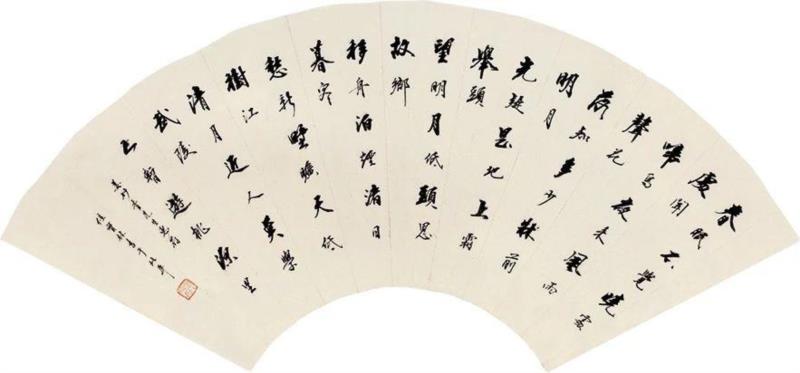 春眠不覺曉處
處聞
啼鳥夜來風雨
聲花
落知多少牀前
明月
光疑是地上霜
舉頭
望明月低頭思
故鄉
移舟泊煙渚日
暮客
愁新野曠天低
樹江
清月近人莫學
武陵
人暫遊桃源里